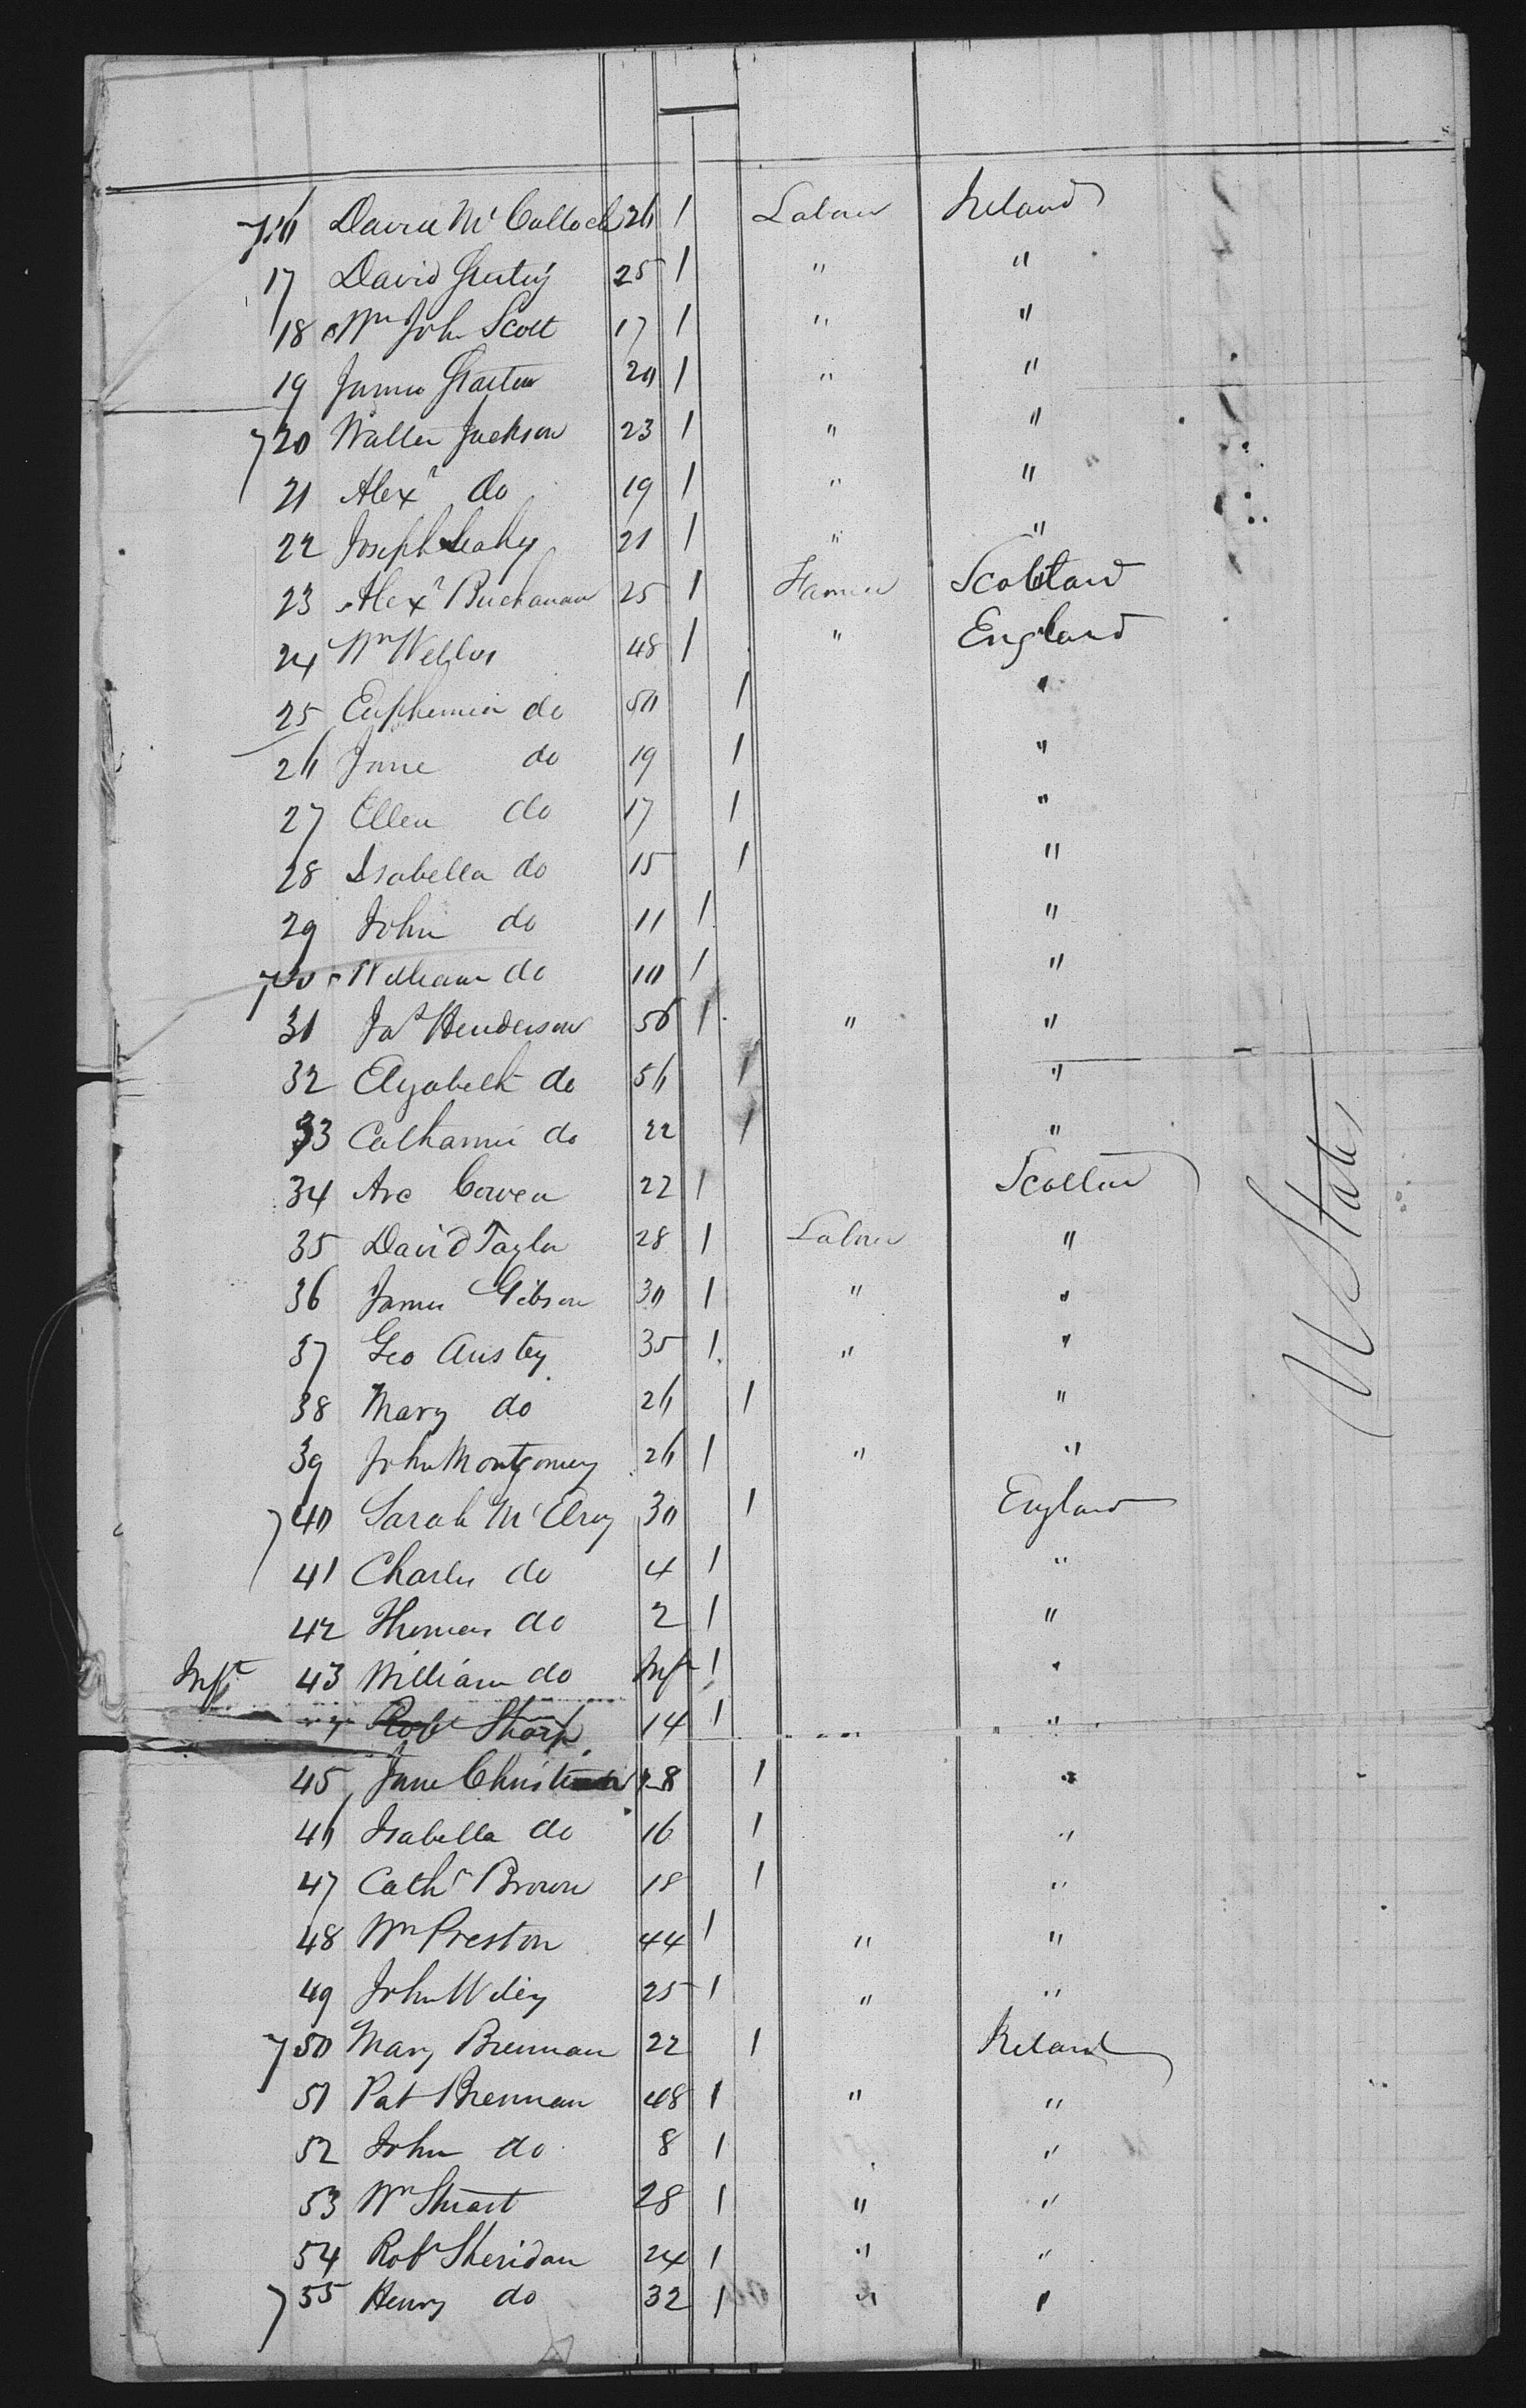 716 David McCulloch 26 1 Labour Ireland
17 David 25 1 " "
18 Wm John Scott 17 1 " "
19 James 20 1 " "
720 Walter Jackson 23 1 " "
21 Alexr do 19 1 " "
22 Joseph Leahy 21 1 " "
23 Alexr Buchanan 25 1 Farmer Scotland
24 Wm 48 1 " England
25 Euphemia do 50 1 "
26 Jane do 19 1 "
27 Ellen do 17 1 "
28 Isabella do 15 1 "
29 John do 11 1 "
730 William do 10 1 "
31 Jas Henderson 56 1 " "
32 Elizabeth do 56 1 "
33 Catharine do 22 1 "
34 Arc Cowen 22 1 Scotland
35 David Taylor 28 1 Labour "
36 James Gibson 30 1 " "
37 Geo Anstey 35 1 " "
38 Mary do 26 1 "
39 John Montgomery 26 1 " "
740 Sarah McElroy 30 1 England
41 Charles do 4 1 "
42 Thomas do 2 1 "
Inft 43 William do Inf 1 "
Robt Sharp 14 1 "
45 Jane 28 1 "
46 Isabella do 16 1 "
47 Cathr Brown 18 1 "
48 Wm Preston 44 1 " "
49 John Wiley 25 1 " "
750 Mary Brennan 22 1 Ireland
51 Pat Brennan 48 1 " "
52 John do 8 1 "
53 Wm Stuart 28 1 " "
54 Robt Sheridan 24 1 " "
755 Henry do 32 1 " "
U States